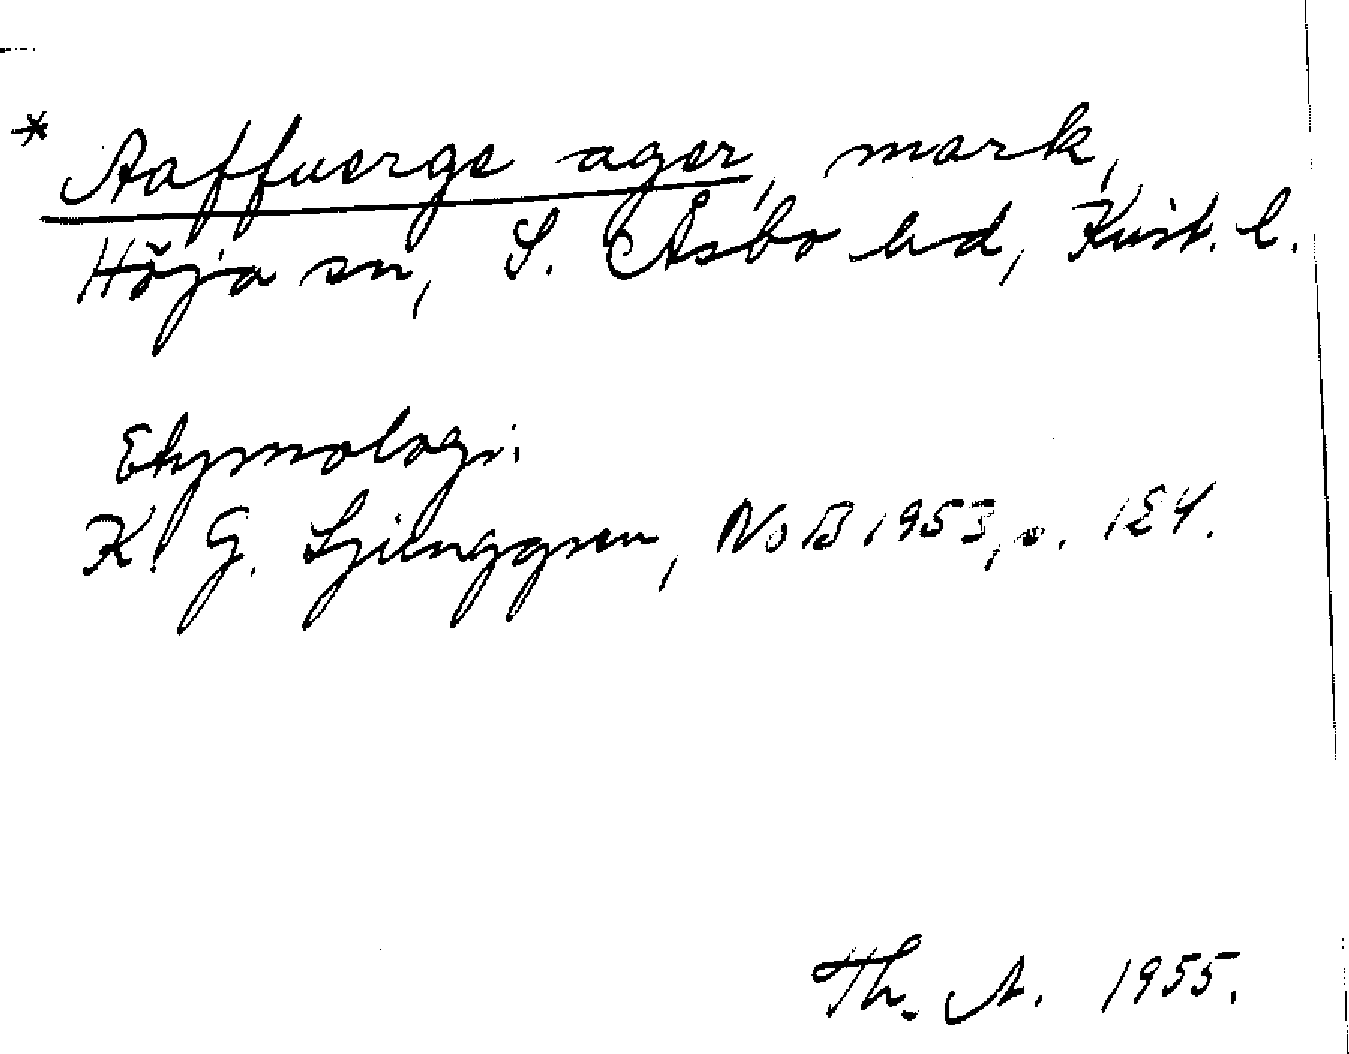 * Aaffuerge ager, mark,
Höja sn, S. Åsbo hd, Krist. l.
Etymologi:
K. G. Ljunggren, NoB 1953, s. 184.
Th. A. 1955.